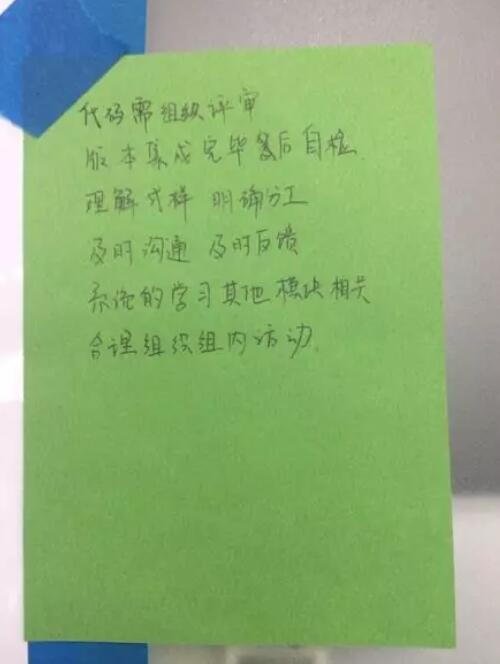 代码需组织评审
版本集成完毕后自检
理解式样 明确分工
及时沟通 及时反馈
系统的学习其他模块相关
合理组织组内活动